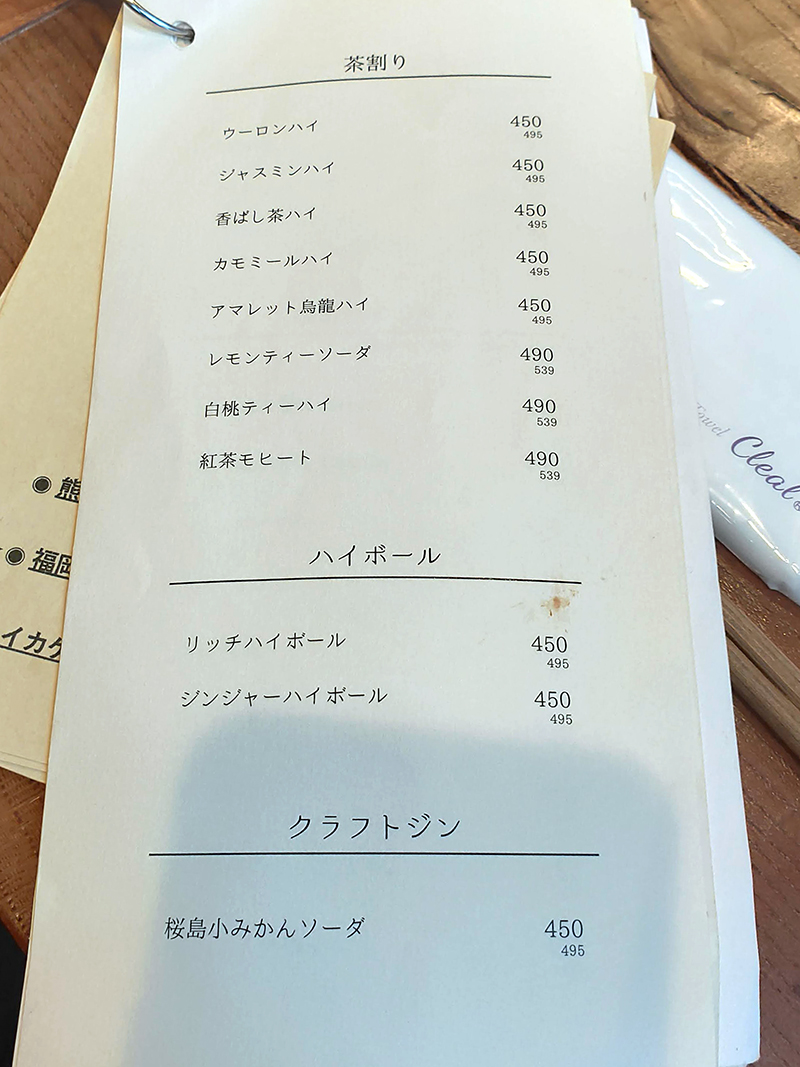 茶割り
ウーロンハイ 450
495
ジャスミンハイ 450
495
香ばし茶ハイ 450
495
カモミールハイ 450
495
アマレット烏龍ハイ 450
495
レモンティーソーダ 490
539
白桃ティーハイ 490
539
紅茶モヒート 490
539
ハイボール
リッチハイボール 450
495
ジンジャーハイボール 450
495
クラフトジン
桜島小みかんソーダ 450
495
◉熊
◉福岡
イカゲ
Towel
Cleal